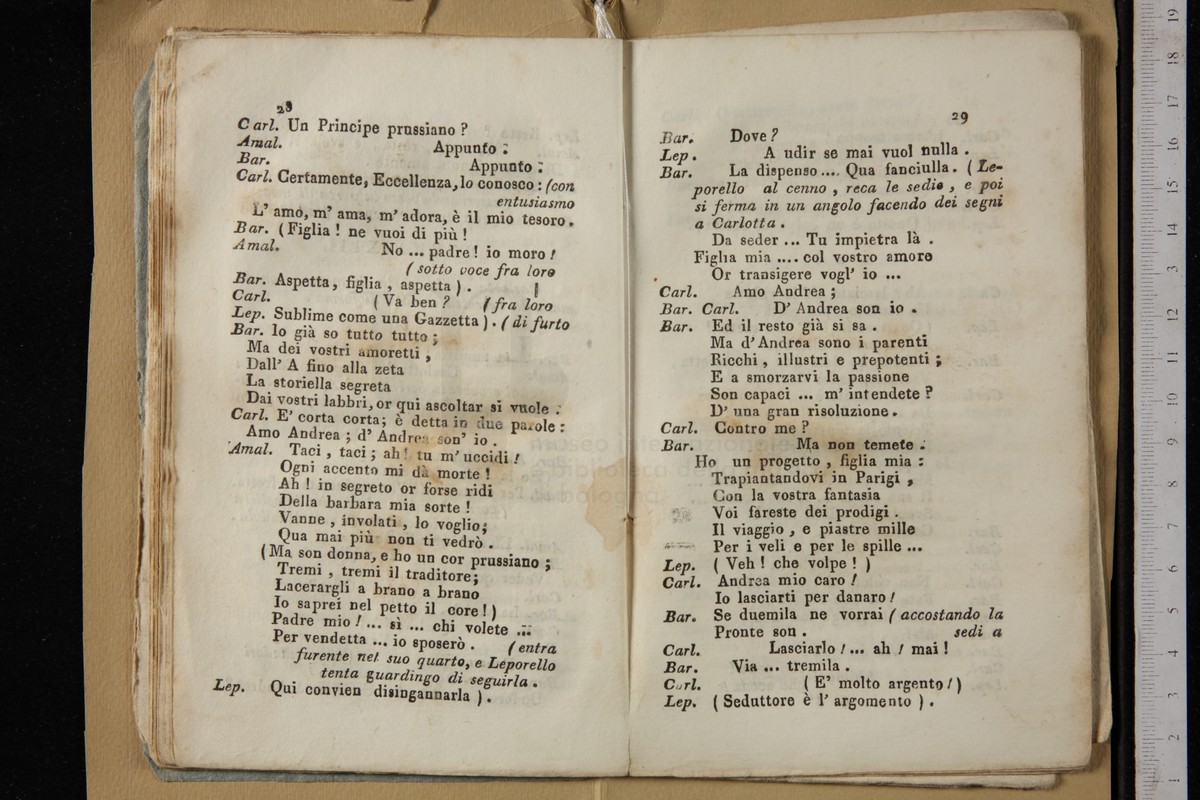 28
Carl. Un Principe prussiano ?
Amal. Appunto :
Bar. Appunto :
Carl. Certamente, Eccellenza, lo conosco : (con
entusiasmo
L' amo, m' ama, m' adora, è il mio tesoro.
Bar. ( Figlia ! ne vuoi di più !
Amal. No ... padre ! io moro !
( sotto voce fra loro
Bar. Aspetta, figlia , aspetta ) .
Carl. ( Va ben ? ( fra loro
Lep. Sublime come una Gazzetta ) . ( di furto
Bar. Io già so tutto tutto ;
Ma dei vostri amoretti ,
Dall' A fino alla zeta
La storiella segreta
Dai vostri labbri, or qui ascoltar si vuole .
Carl. E' corta corta; è detta in due parole :
Amo Andrea ; d' Andrea son' io .
Amal. Taci , taci ; ah ! tu m' uccidi !
Ogni accento mi dà morte !
Ah ! in segreto or forse ridi
Della barbara mia sorte !
Vanne , involati , lo voglio;
Qua mai più non ti vedrò .
(Ma son donna, e ho un cor prussiano ;
Tremi , tremi il traditore;
Lacerargli a brano a brano
Io saprei nel petto il core ! )
Padre mio ! ... sì ... chi volete ...
Per vendetta ... io sposerò . (entra
furente nel suo quarto, e Leporello
tenta guardingo di seguirla .
Lep. Qui convien disingannarla ) .
29
Bar. Dove ?
Lep. A udir se mai vuol nulla .
Bar. La dispenso .... Qua fanciulla . ( Le-
porello al cenno , reca le sedie , e poi
si ferma in un angolo facendo dei segni
a Carlotta .
Da seder ... Tu impietra là .
Figlia mia .... col vostro amore
Or transigere vogl' io ...
Carl. Amo Andrea ;
Bar. Carl. D' Andrea son io .
Bar. Ed il resto già si sa .
Ma d' Andrea sono i parenti
Ricchi , illustri e prepotenti ;
E a smorzarvi la passione
Son capaci ... m' intendete ?
D' una gran risoluzione .
Carl. Contro me ?
Bar. Ma non temete .
Ho un progetto , figlia mia :
Trapiantandovi in Parigi ,
Con la vostra fantasia
Voi fareste dei prodigi .
Il viaggio , e piastre mille
Per i veli e per le spille ...
Lep. ( Veh ! che volpe ! )
Carl. Andrea mio caro !
Io lasciarti per danaro !
Bar. Se duemila ne vorrai ( accostando la
Pronte son . sedi a
Carl. Lasciarlo ! ... ah ! mai !
Bar. Via ... tremila .
Carl. ( E' molto argento ! )
Lep. ( Seduttore è l' argomento ) .